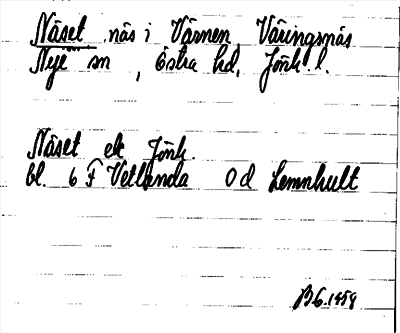 Näset näs i Värnen, Väringsnäs
Nye sn, Östra hd, Jönk l.
Näset ek Jönk.
bl. 6 F Vetlanda Od Lemnhult
BG. 1959